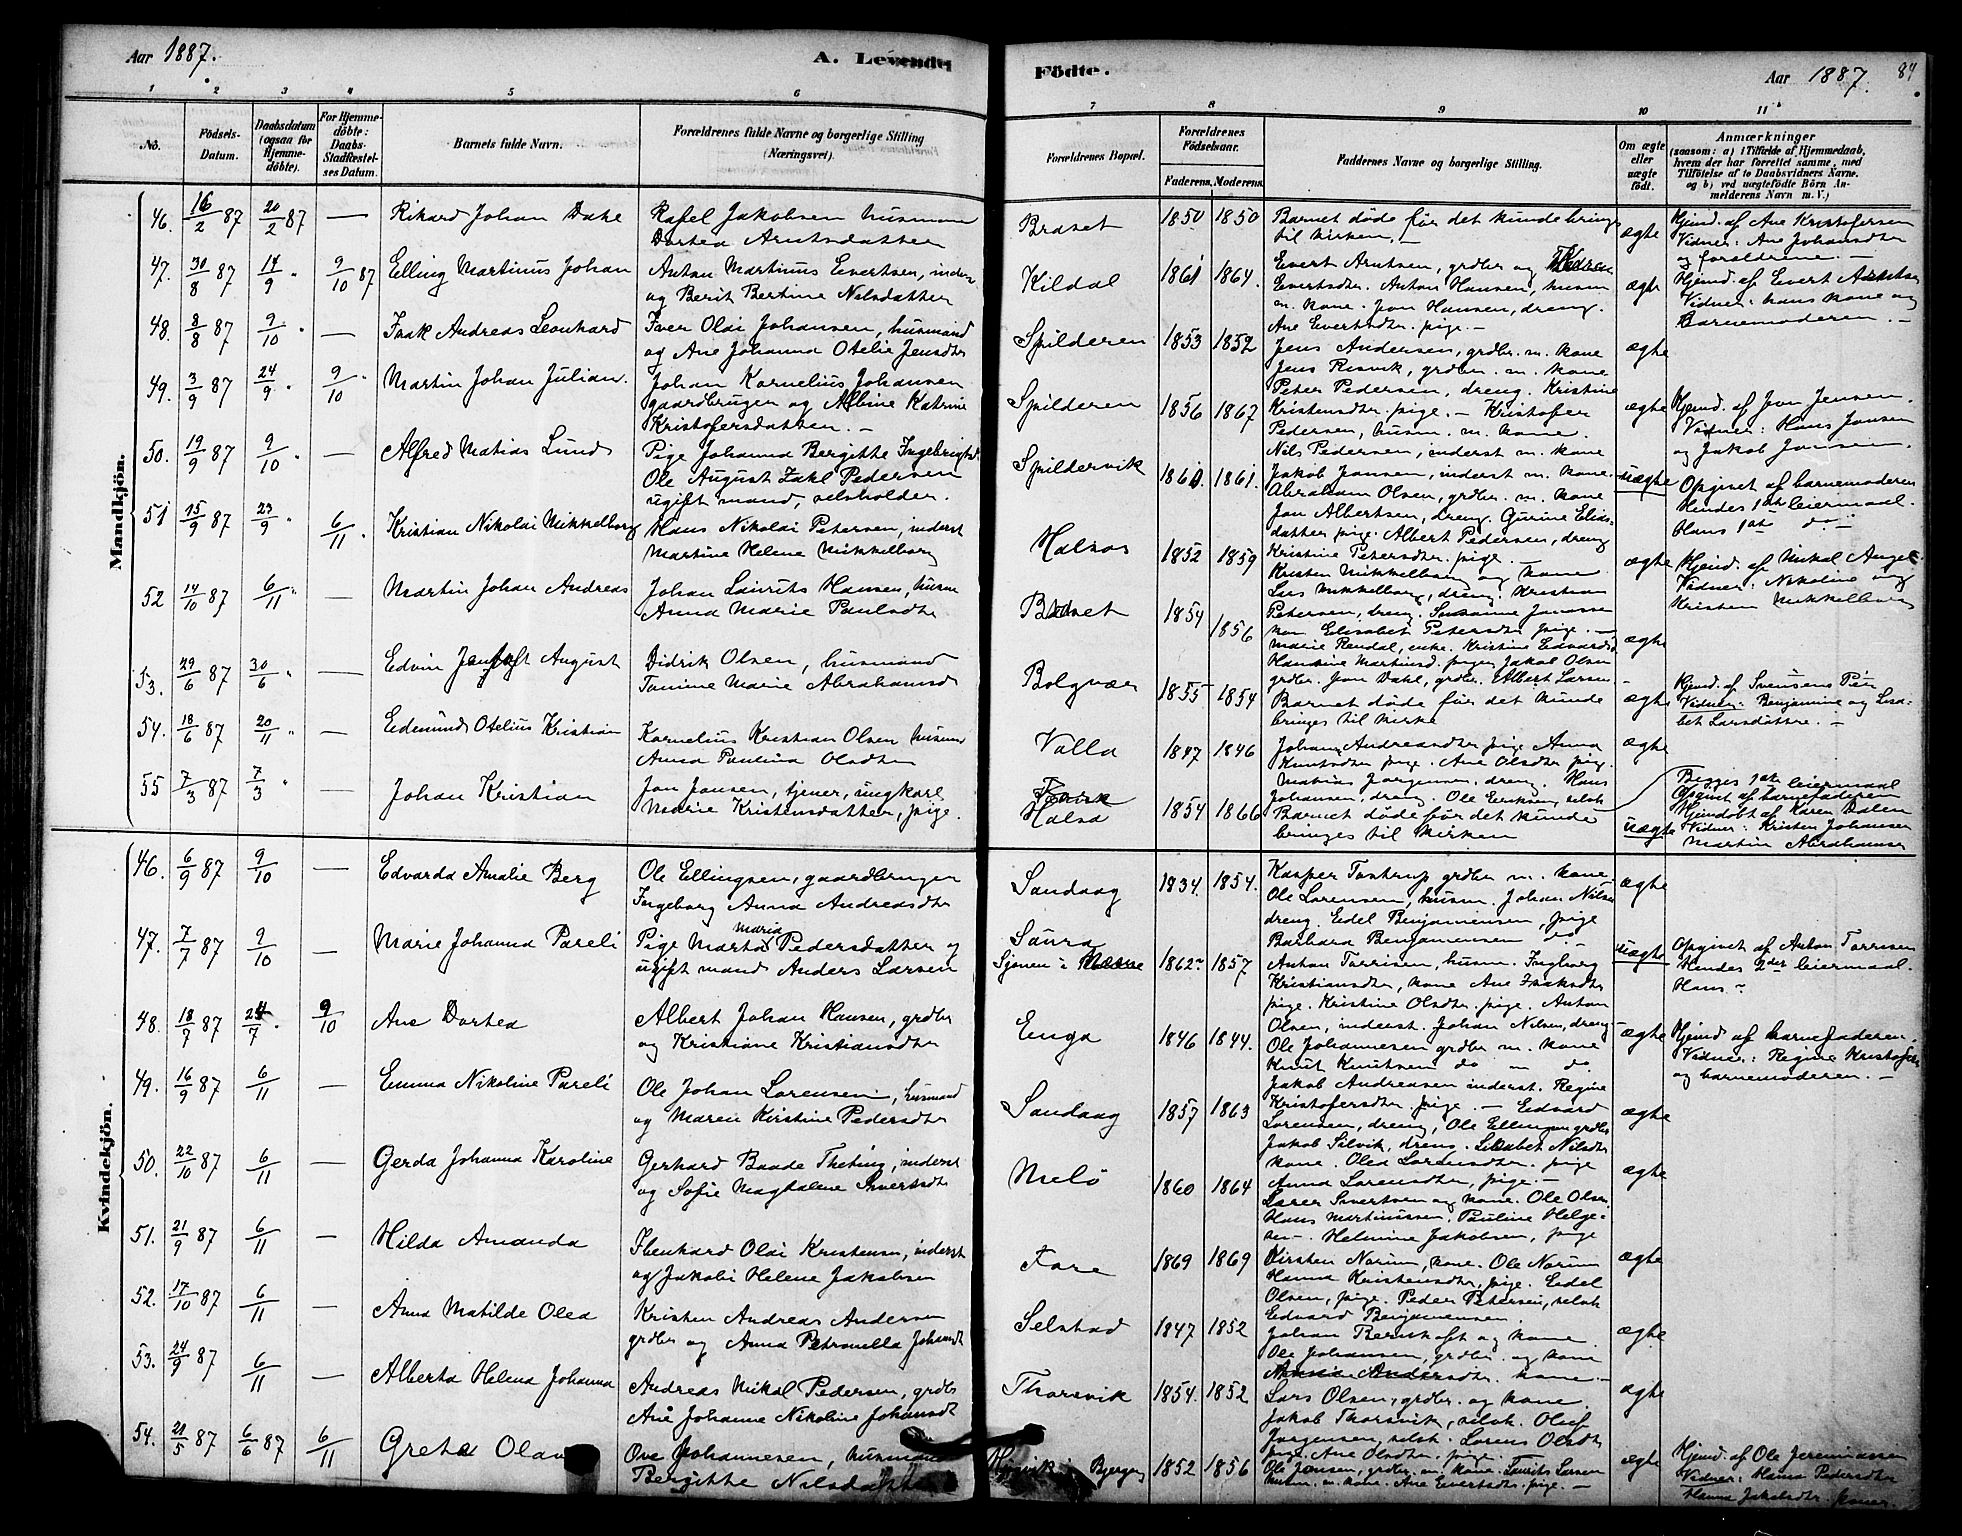 Aar 1887.
A. Levende
Födte.
Aar 1887.
84
1 2 3 4 5 6 7 8 9 10 11
No.
Födsels-Datum.
Daabsdatum (ogsaa for Hjemmedöbte).
For Hjemmedöbte: Daabs-Stadfæstelses Datum.
Barnets fulde Navn.
Forældrenes fulde Navne og borgerlige Stilling (Næringsvei).
Forældrenes Bopæl.
Forældrenes Födselsaar.
Faderens. Moderens.
Faddernes Navne og borgerlige Stilling.
Om ægte eller uægte födt.
Anmærkninger
(saasom: a) i Tilfælde af Hjemmedaab, hvem der har forrettet samme, med Tilföielse af to Daabsvidners Navne, og b) ved uægtefödte Börn Anmelderens Navn m. V.)
Mandkjön.
46. 16/2 87 20/2 87 — Rikard Johan Dahe
Rafel Jakobsen husmand
Dortea Arntsdatter
Braset 1850 1850
Barnet døde før det kunde bringes
til kirken. —
ægte
Hjemd. af Ane Kristofersen
Vidner: Ane Johansdtr
og forældrene. —
47. 30/8 87 14/9 " 9/10 87 Elling Martinus Johan
Anton Martinus Evertsen, inderst
og Berit Bertine Nilsdatter
Kildal 1861 1864.
Evert Arntsen, grdbr og
Evertsdtr. Anton Hansen, husm
m. kone. Jon Hansen, dreng.
Ane Evertsdtr. pige. —
ægte
Hjemd. af Evert Arntsen
Vidner: hans kone og
Barnemoderen. —
48. 8/8 87 9/10 " — Isak Andreas Leonhard
Iver Olai Johansen, husmand
og Ane Johanna Otelie Jensdtr
Spilderen 1853 1852
Jens Andersen, grdbr. m. kone
Jens Resvik, grdbr. m. kone
Peter Pedersen, dreng. Kristine
Kristensdtr. pige. — Kristofer
Pedersen, husm. m. kone.
ægte
49. 3/9 87 24/9 " 9/10 " Martin Johan Julian.
Johan Kornelius Johansen
gaardbruger og Albine Katrine
Kristofersdatter. —
Spilderen 1856 1867
ægte
Hjemd. af Jon Jensen.
Vidner: Hans Jonsen
og Jakob Jonsen.
50. 19/9 87 9/10 " — Alfred Matias Lund
Pige Johanna Bergitte Ingebrigtsd.
Ole August Zakl Pedersen
ugift mand, selvholder.
Spildervik 1860. 1861.
Nils Pedersen, inderst m. kone
Jakob Jonsen, inderst m. kone.
Abraham Olsen, grdbr. m. kone
Jon Albertsen, dreng. Gurine Elias-
datter pige. Albert Pedersen, dreng
Kristine Petersdtr. pige. —
uægte
Opgivet af barnemoderen
Hendes 1ste leiermaal.
Hans 1ste do —
51 15/9 87 23/9 " 6/11 " Kristian Nikolai Mikkelborg
Hans Nikolai Petersen, inderst
Martine Helene Mikkelborg
Halsos 1852 1859
Kristen Mikkelborg og kone
Lars Mikkelborg, dreng. Kristian
Petersen, dreng. Susanne Jonassen
kone Elisabet Petersdtr pige. —
ægte
Hjemd. af Mikal Angel.
Vidner: Nikoline og
Kristen Mikkelborg
52 14/10 87 6/11 " — Martin Johan Andreas
Johan Laurits Hansen, husm
Anna Marie Paulsdtr
Braset 1854 1856
Marie Rendal, enke. Kristine Edvardsd.
Hansine Martinsd. piger. Jakob Olsen
grdbr. Jon Dahl, grdbr. Albert Larsen.
ægte
53. 29/6 87 30/6 " — Edvin August
Didrik Olsen, husmand
Tomine Marie Abrahamsd
Bolgvær 1855 1854
Barnet døde før det kunde
bringes til kirke
ægte
Hjemd. af Svensens Peu
Vidner: Benjamine og Lisa-
bet Larsdatter. —
54. 18/6 87 20/11 " — Edmund Otelius Kristian
Kornelius Kristian Olsen husm
Anna Paulina Olsdtr
Valla 1847 1846
Johan Andreasdtr pige Anna
Knutsdtr pige. Ane Olsdtr pig.
Matias Jørgensen, dreng. Hans
Johansen, dreng. Ole Eriksen, selvh
ægte
55 7/3 87 7/3 " — Johan Kristian
Jon Jonsen, tjener, ungkarl
Marie Kristensdatter, pige.
Halsa 1854 1866
Barnet døde før det kunde
bringes til kirken
uægte
Begges 1ste leiermaal
Opgivet af barnefaderen
Hjemdøbt af Karen Dalen
Vidner: Kristen Johansen
Martin Abrahamsen
Kvindekjön.
46. 6/9 87 9/10 — Edvarda Amalie Berg
Ole Ellingsen, gaardbruger
Ingeborg Anna Andreasdtr
Sandaag 1834 1854.
Kasper Tostrup grdbr m. kone.
Ole Lorensen, husm. Johan Nilsen
dreng. Eidel Benjaminsen, pige
Barbara Benjaminsen do —
ægte
47. 7/7 87 9/10 — Marie Johanna Pareli
Pige Marta Maria Pedersdatter og
ugift mand Anders Larsen
Saura
Sjonen i Næsne 1862 1857
Anton Torrisen, husm. Ingborg
Kristiansdtr, kone Ane Isaksdtr
pige. Kristine Olsdtr. pige. Anton
Olsen, inderst. Johan Nilsen, dreng
uægte
Opgivet af Anton Torrisen
Hendes 2den leiermaal.
Hans —
48. 18/7 87 24/7 " 9/10 Ane Dortea
Albert Johan Hansen, grdbr
og Kristiane Kristiansdtr
Enga 1846 1844.
Ole Johannesen grdbr m. kone
Knut Knutsen do m do.
Jakob Andreasen inderst. Regine
Kristofersdtr. pige. —
ægte
Hjemd. af barnefaderen.
Vidner: Regine Kristofers
og barnemoderen. —
49. 16/9 87 6/11 — Emma Nikoline Pareli
Ole Johan Lorensen, husmand
og Maren Kirstine Pedersdtr
Sandaag 1857 1863
Edvard
Lorensen, dreng, Ole Ellingsen grdbr
Jakob Selvik, dreng. Lisabet Nilsdtr
kone. Olea Lorensdtr. pige
Anna Lorensdtr, pige. —
ægte
50. 22/10 87 6/11 — Gerda Johanna Karoline
Gerhard Baade Theting, inderst
og Sofie Magdalene Sivertsdtr
Melö 1860 1864
Lorer Sivertsen og kone. Ole Olsen
Hans Martinussen. Pauline Helge-
sen. Helmine Jakobsen, pige
ægte
51. 21/9 87 6/11 — Hilda Amanda
Ebenhard Olai Kristensen, inderst
og Jakobi Helene Jakobsen
Fore 1869 1869
Kirsten Norum, kone. Ole Norum
Hanna Kristensdtr, pige. Eidel
Olsen, pige. Peder Petersen, selvh
Edvard Benjaminsen.
ægte
52. 17/10 87 6/11 — Anna Matilde Olea
Kristen Andreas Andersen
grdbr og Anna Petronella Johansdtr
Selstad 1847 1852
Johan Bernhoft og kone
Ole Johansen, grdbr. og kone
Andersdtr. kone —
ægte
53. 24/9 87 6/11 — Alberta Helena Johanna
Andreas Mikal Pedersen, grdbr
Ane Johanne Nikoline Johansdt
Thorsvik 1854. 1852
Lars Olsen, grdbr. og kone.
Jakob Thorsvik, selvh. Oluf
Jørgensen, selvh. Lorens Olsdtr
pige. Ane Olsdtr. pige.
ægte
54. 21/5 87 6/6 87 6/11 Greta Olava
Ove Johannesen, husmand
Bergitte Nilsdatter
Bjergen 1852 1856
Ole Jonsen, grdbr. m. kone. Laurits Larsen
husm. m. kone. Ane Evertsdtr. pige. —
ægte
Hjemd. af Ole Jeremiassen
Vidner: Hansa Pedersdtr
Hanna Jakobsdtr koner.